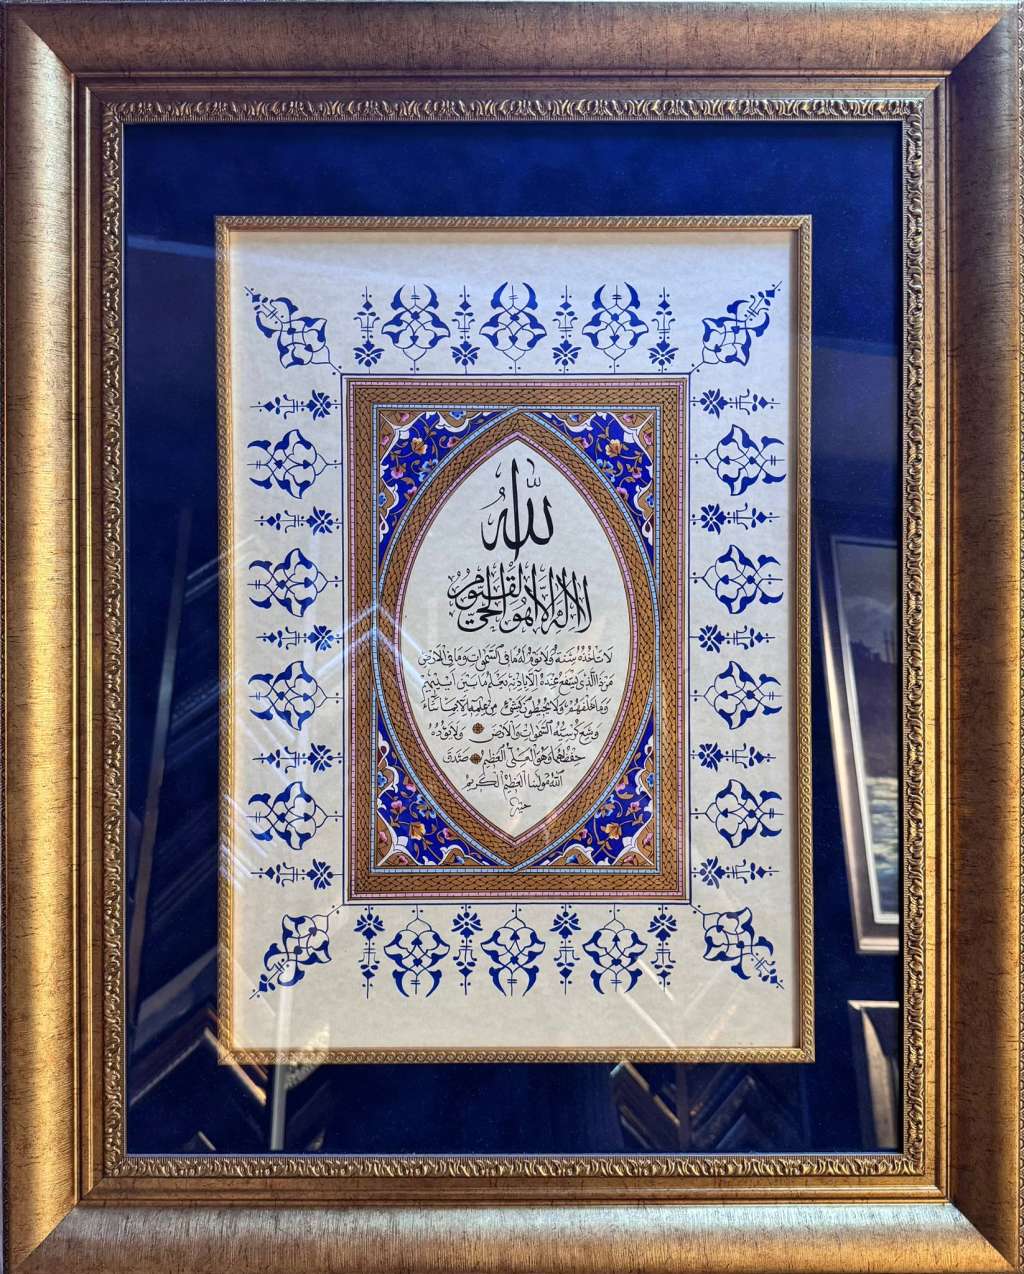 الله
لا إله إلا هو الحي القيوم
لا تأخذه سنة ولا نوم له ما في السموات وما في الأرض
من ذا الذي يشفع عنده إلا بإذنه يعلم ما بين أيديهم
وما خلفهم ولا يحيطون بشيء من علمه إلا بما شاء
وسع كرسيه السموات والأرض ولا يؤده
حفظهما وهو العلي العظيم صدق
الله مولينا العظيم الكريم